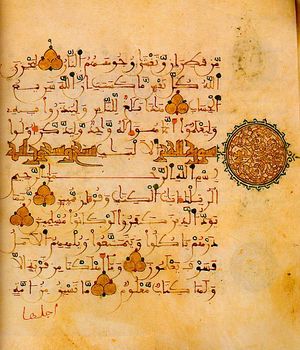 من قطران وتغشى وجوههم النار ليجزي
الله كل نفس ما كسبت إن الله سريع
الحساب هذا بلغ للناس ولينذروا به
وليعلموا أنما هو إله وحد وليذكر أولوا
الالبب
بسم الله الرحمن الرحيم
الر تلك ءايت الكتب وقرءان مبين ربما
يود الذين كفروا لو كانوا مسلمين
ذرهم ياكلوا ويتمتعوا ويلههم الامل
فسوف يعلمون وما اهلكنا من قرية الا
ولها كتاب معلوم ما تسبق من امة
اجلها